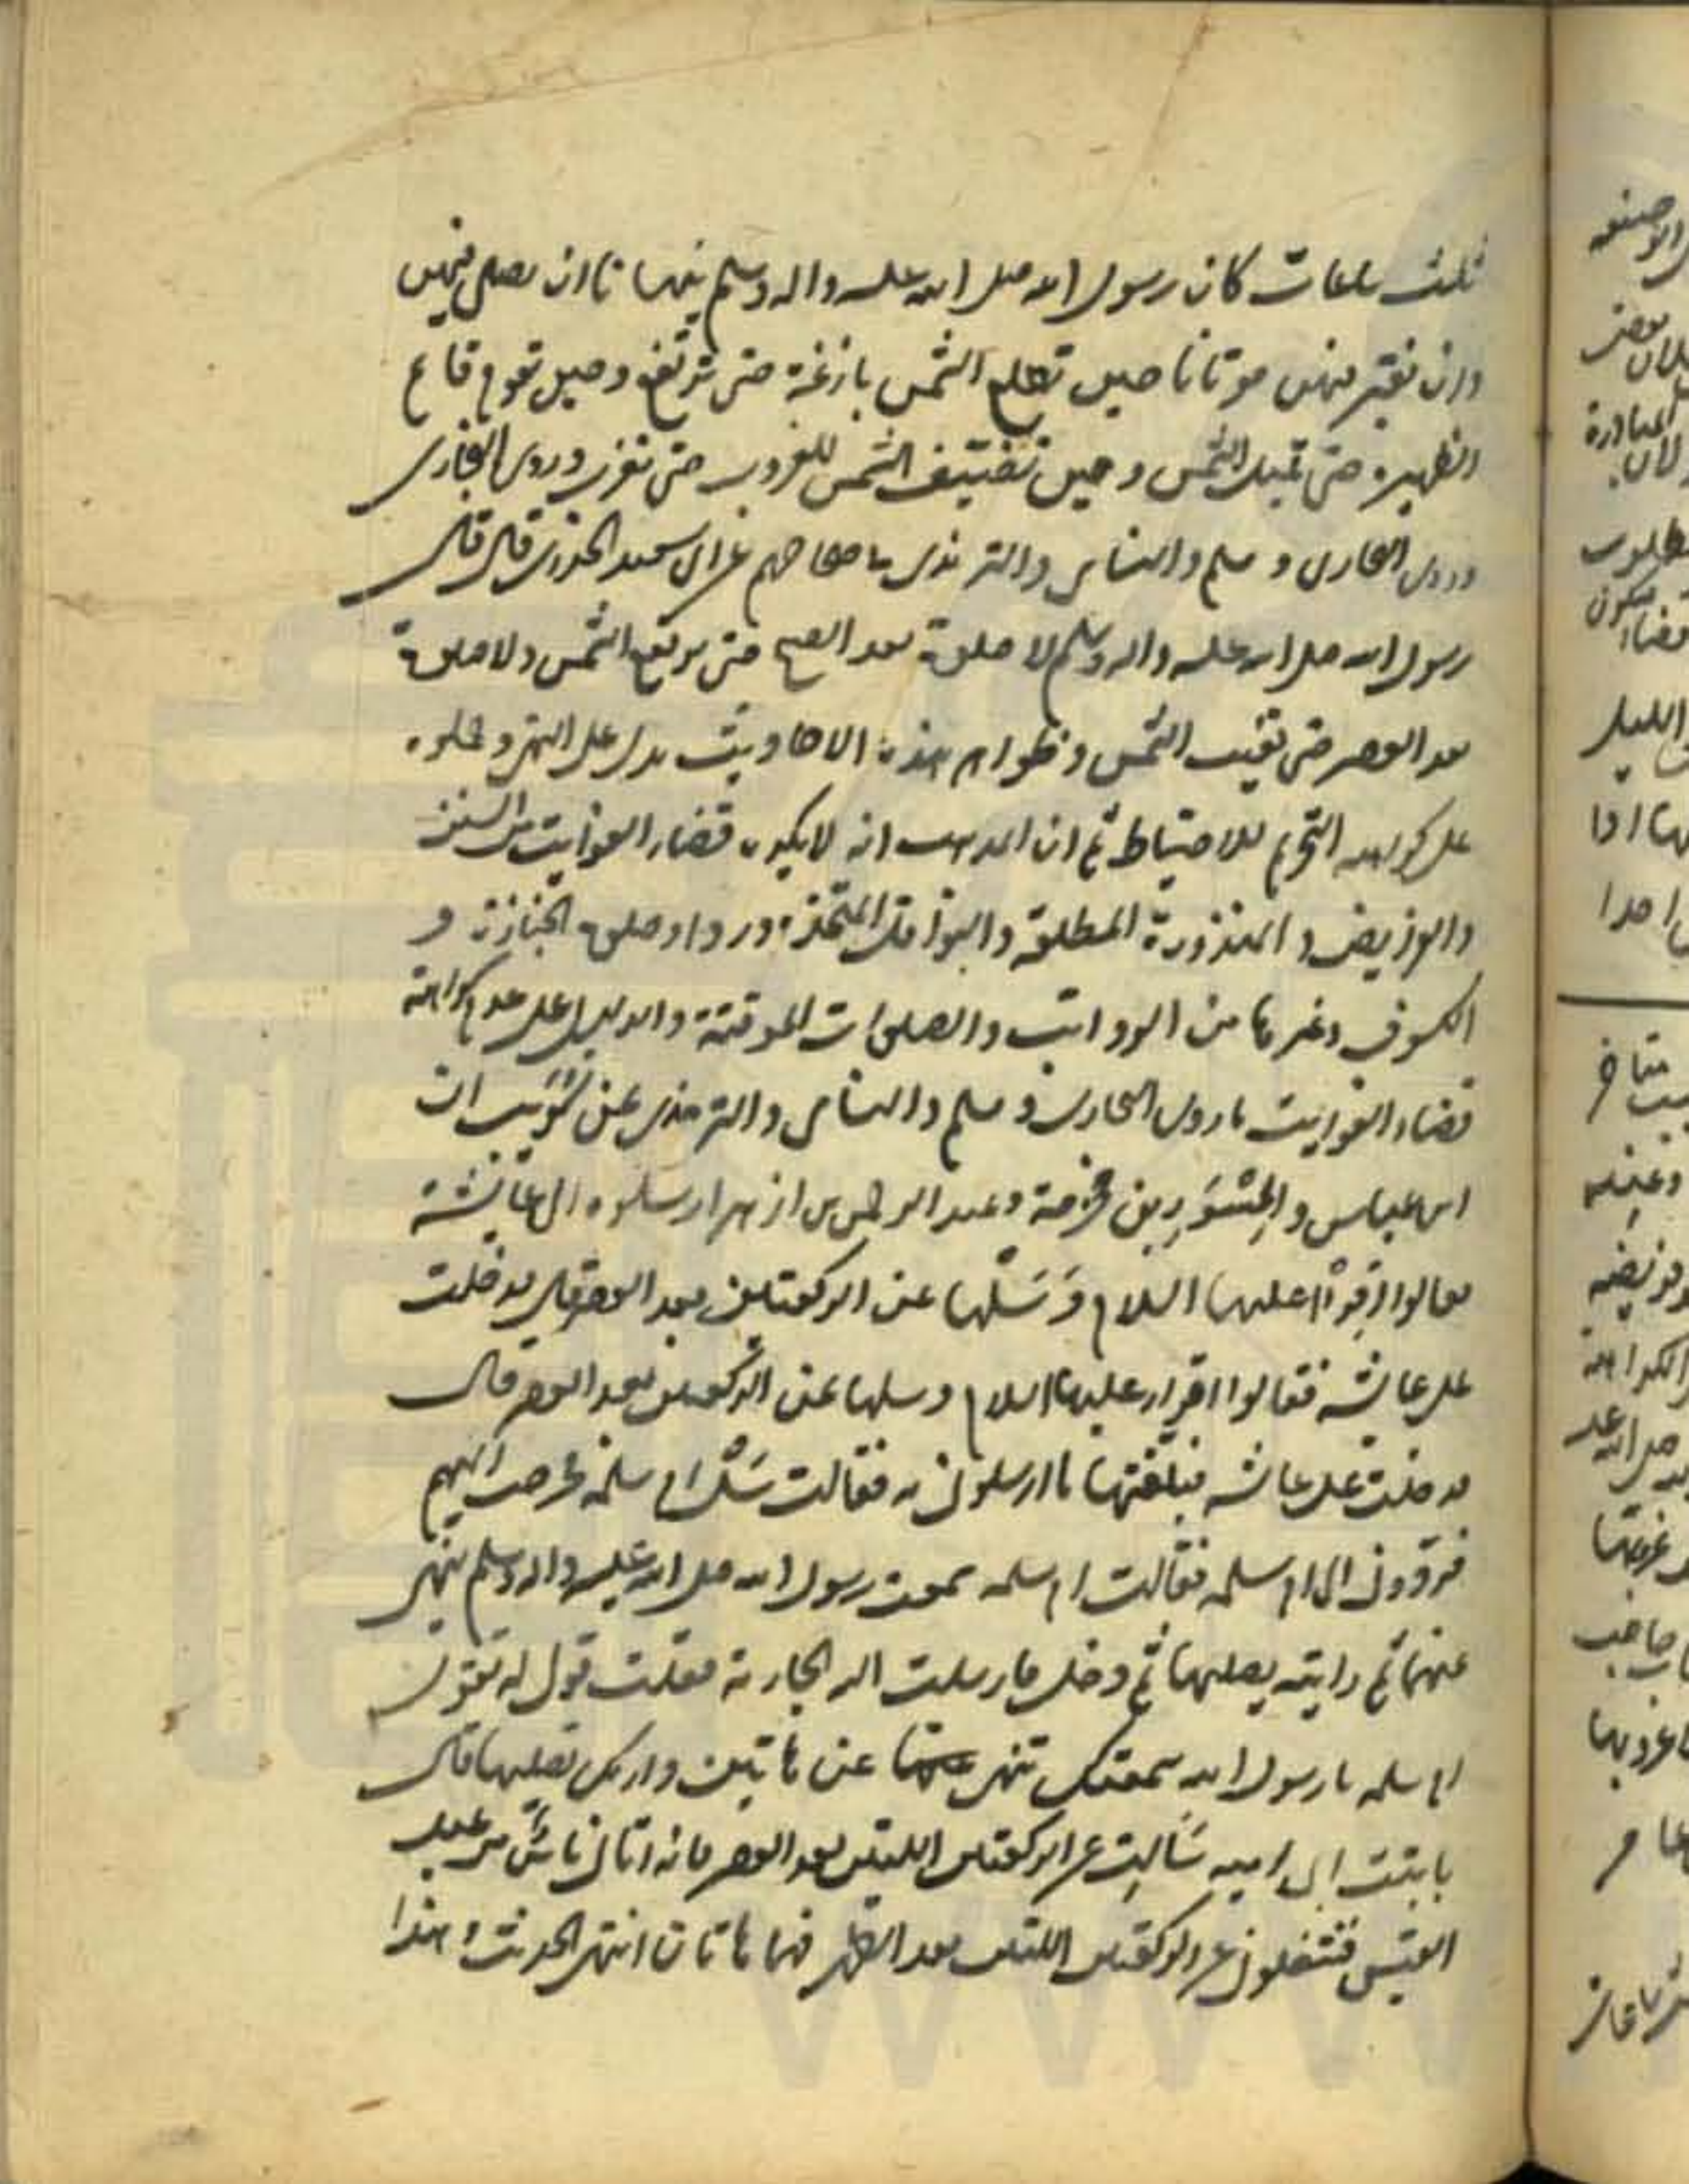 ثلث ساعات كان رسول الله صلى الله عليه واله وسلم ينهانا ان نصلي فيهن
وان نقبر فيهن موتانا حين تطلع الشمس بازغة حتى ترتفع وحين تقوم قائم
الظهيرة حتى تميل الشمس وحين تضيف الشمس للغروب حتى تغرب وروى البخارى
وروى البخارى و مسلم والنساى والترمذى فى صحاحهم عن ابى سعيد الخدرى قال قال
رسول الله صلى الله عليه واله وسلم لا صلوة بعد الصبح حتى ترتفع الشمس ولا صلوة
بعد العصر حتى تغيب الشمس وظواهر هذه الاحاديث يدل على النهى وحملوه
على كراهه التحريم للاحتياط ثم ان المذهب انه لا يكره قضاء الفوايت من السنن
والفرايض و المنذورة المطلقة والنوافل المتخذة وردا وصلوة الجنازة و
الكسوف وغيرها من الرواتب والصلوات الموقتة والدليل على عدم كراهة
قضاء الفوايت ما روى البخارى و مسلم والنساى والترمذى عن كريب ان
ابن عباس والمِسْوَر بن مخرمة وعبد الرحمن بن ازهر ارسلوه الى عائشة
فقالوا اقرأ عليها السلام وَسَلْها عن الركعتين بعد العصر قال فدخلت
على عايشه فقالوا اقرأ عليها السلام وسلها عن الركعتين بعد العصر قال
فدخلت على عايشه فبلغتها ما ارسلونى به فقالت سَلْ ام سلمه فخرجت اليهم
فردونى الى ام سلمه فقالت ام سلمه سمعت رسول الله صلى الله عليه واله وسلم ينهى
عنهما ثم رايته يصليهما ثم دخل فارسلت اليه الجارية فقلت قولى له تقول
ام سلمه يا رسول الله سمعتك تنهى عنها عن هاتين واريك تصليهما قال
يا بنت ابى اميه سَالتِ عن الركعتين اللتين بعد العصر فانه اتانى ناسٌ من عبد
القيس فشغلونى عن الركعتين اللتين بعد الظهر فهما هاتان انتهى الحديث وهذا